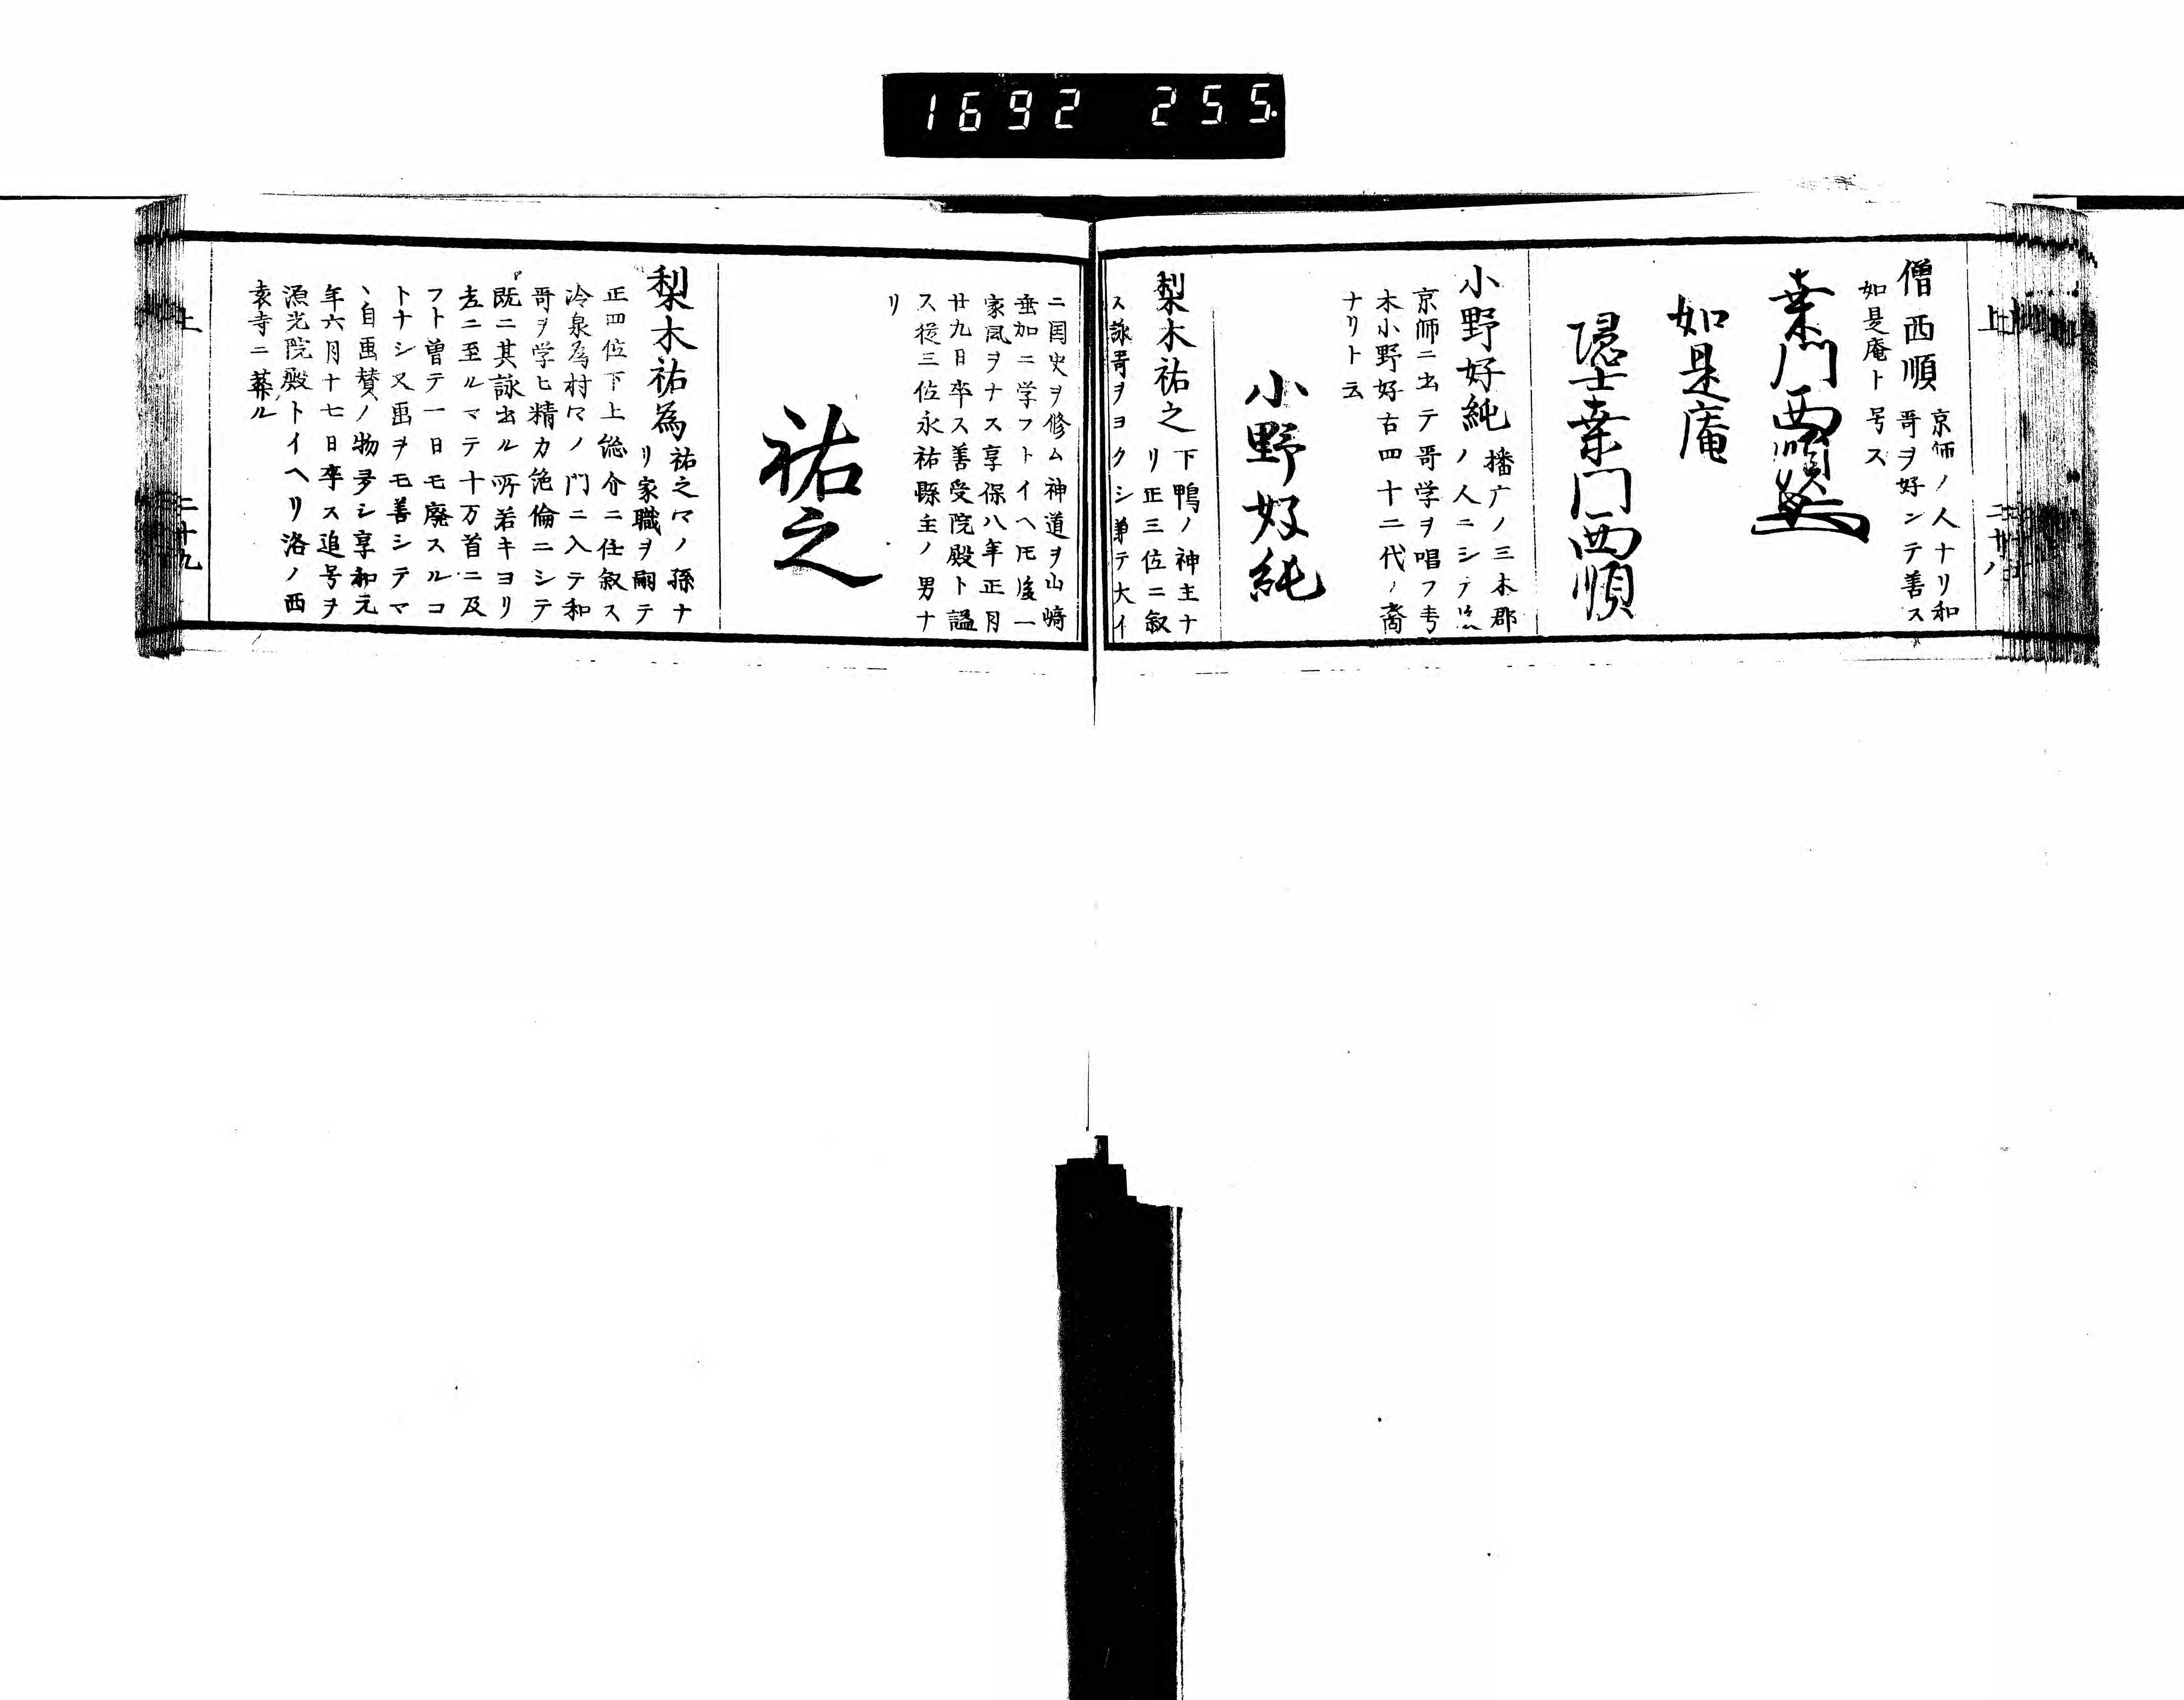 1692 255
上 二十八
僧西順 京師ノ人ナリ和
哥ヲ好ンテ善ス
如是庵ト号ス
桒門西順
如是庵
隠士桒門西順
小野好純 播广ノ三木郡
ノ人ニシテ
京師ニ出テ哥学ヲ唱フ
木小野好古四十二代ノ裔
ナリト云
小野好純
梨木祐之 下鴨ノ神主ナ
リ正三位ニ叙
ス詠哥ヲヨクシ兼テ大イ
ニ国史ヲ修ム神道ヲ山﨑
垂加ニ学フトイヘ𪜈後一
家風ヲナス享保八年正月
廿九日卒ス善受院殿ト謚
ス従三位永祐縣主ノ男ナ
リ
祐之
梨木祐為 祐之ノ孫ナ
リ家職ヲ嗣テ
正四位下上総介ニ任叙ス
冷泉為村ノ門ニ入テ和
哥ヲ学ヒ精力絶倫ニシテ
既ニ其詠出ル所若キヨリ
老ニ至ルマテ十万首ニ及
フト曽テ一日モ廃スルコ
トナシ又画ヲモ善シテマ
ヽ自画賛ノ物多シ享和元
年六月十七日卒ス追号ヲ
漁光院殿トイヘリ洛ノ西
袁寺ニ葬ル
上 二十九